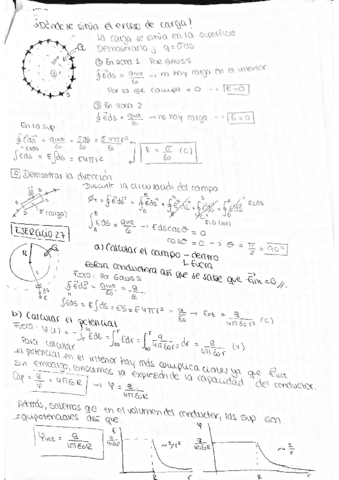 ¿Dónde se sitúa el exceso de carga?
La carga se sitúa en la superficie
Demostrarlo ; q = σds
① En zona 1. Por GAUSS
∮Eds = qint/ε₀ → no hay carga en el interior
Por lo que campo = 0 → E=0
② En zona 2
∮Eds = qint/ε₀ → no hay carga → E=0
En la sup.
E = σ/ε₀ (C)
② Demostrar la dirección
Discutir la circulación del campo
(carga)
Edscosθ = 0
cosθ = 0 → θ = π/2 = 90º
EJERCICIO 27
a) Calcular el campo - dentro
fuera
Esfera conductora así que se sabe que Eint = 0 //
Fuera: Por Gauss
∮Eds = qint/ε₀ = q/ε₀
∫Eds = E∫ds = ES = E4πr² = q/ε₀ → Eext = q/4πε₀r² (C)
b) Calcular el potencial
Para calcular
el potencial en el interior hay más complicaciones ya que Eint
Sin embargo, conocemos la expresión de la capacidad del conductor.
Cap = q/φ = 4πε₀R → φ = q/4πε₀R
Además, sabemos que en el volumen del conductor, las sup son
equipotenciales así que
φint = q/4πε₀R
E
~1/r²
R
r
φ
q/4πε₀R
~1/r
R
r